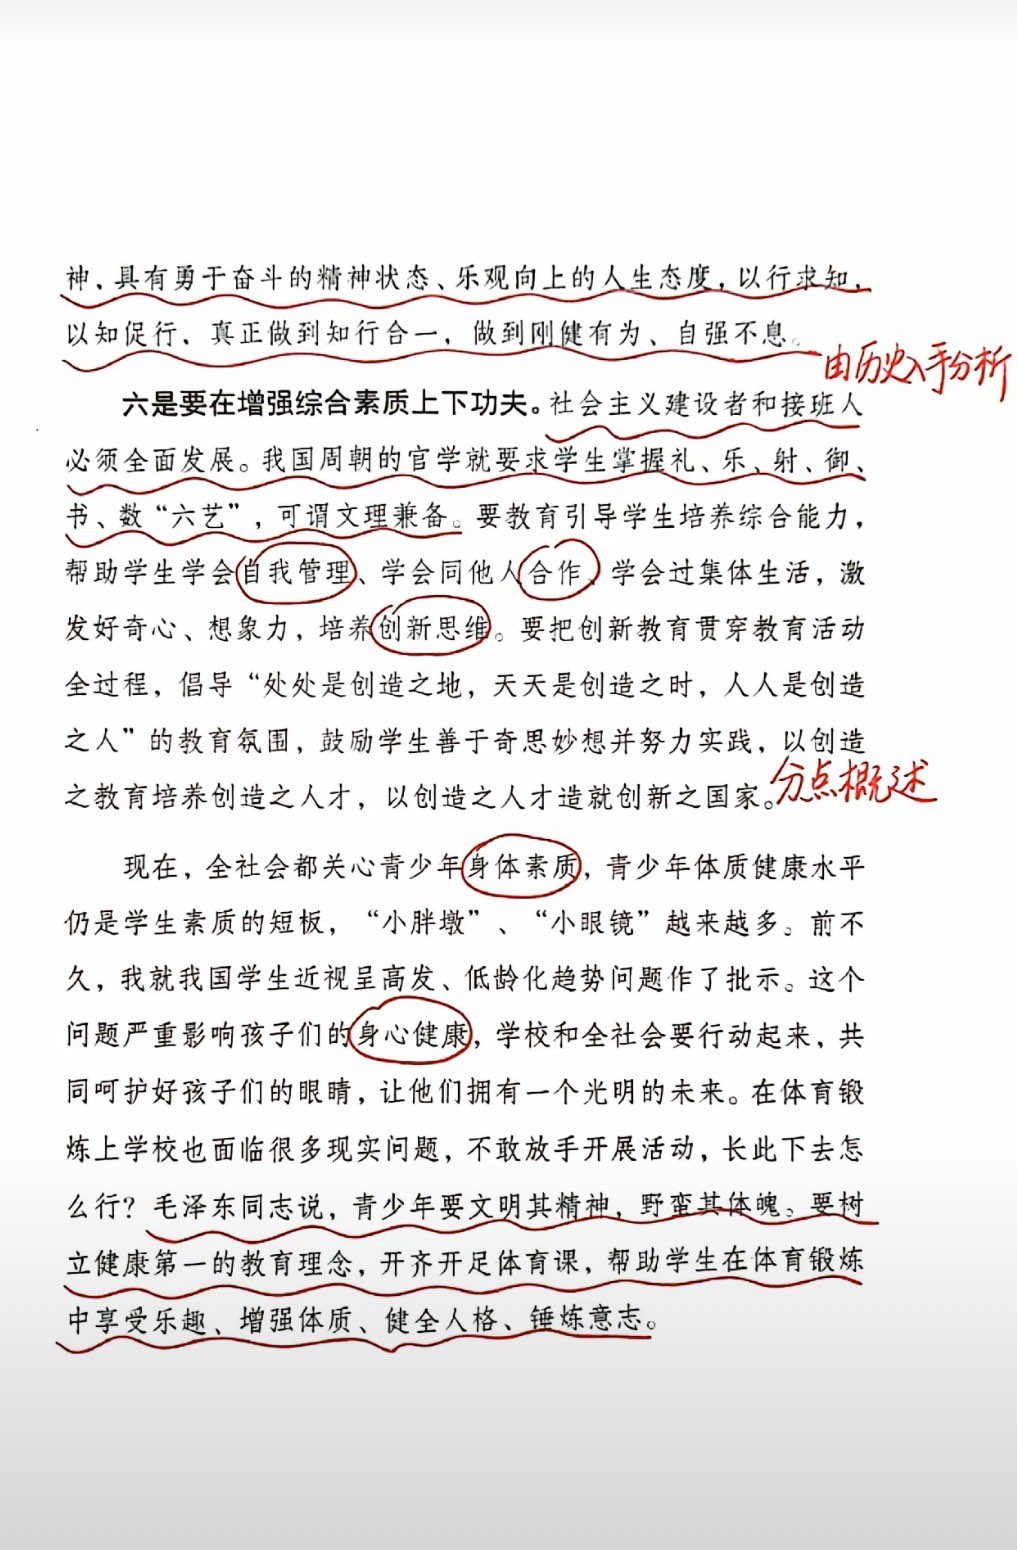 神，具有勇于奋斗的精神状态、乐观向上的人生态度，以行求知，
以知促行，真正做到知行合一，做到刚健有为、自强不息。
由历史入手分析
六是要在增强综合素质上下功夫。社会主义建设者和接班人
必须全面发展。我国周朝的官学就要求学生掌握礼、乐、射、御、
书、数“六艺”，可谓文理兼备。要教育引导学生培养综合能力，
帮助学生学会自我管理、学会同他人合作、学会过集体生活，激
发好奇心、想象力，培养创新思维。要把创新教育贯穿教育活动
全过程，倡导“处处是创造之地，天天是创造之时，人人是创造
之人”的教育氛围，鼓励学生善于奇思妙想并努力实践，以创造
之教育培养创造之人才，以创造之人才造就创新之国家。
分点概述
现在，全社会都关心青少年身体素质，青少年体质健康水平
仍是学生素质的短板，“小胖墩”、“小眼镜”越来越多。前不
久，我就我国学生近视呈高发、低龄化趋势问题作了批示。这个
问题严重影响孩子们的身心健康，学校和全社会要行动起来，共
同呵护好孩子们的眼睛，让他们拥有一个光明的未来。在体育锻
炼上学校也面临很多现实问题，不敢放手开展活动，长此下去怎
么行？毛泽东同志说，青少年要文明其精神，野蛮其体魄。要树
立健康第一的教育理念，开齐开足体育课，帮助学生在体育锻炼
中享受乐趣、增强体质、健全人格、锤炼意志。